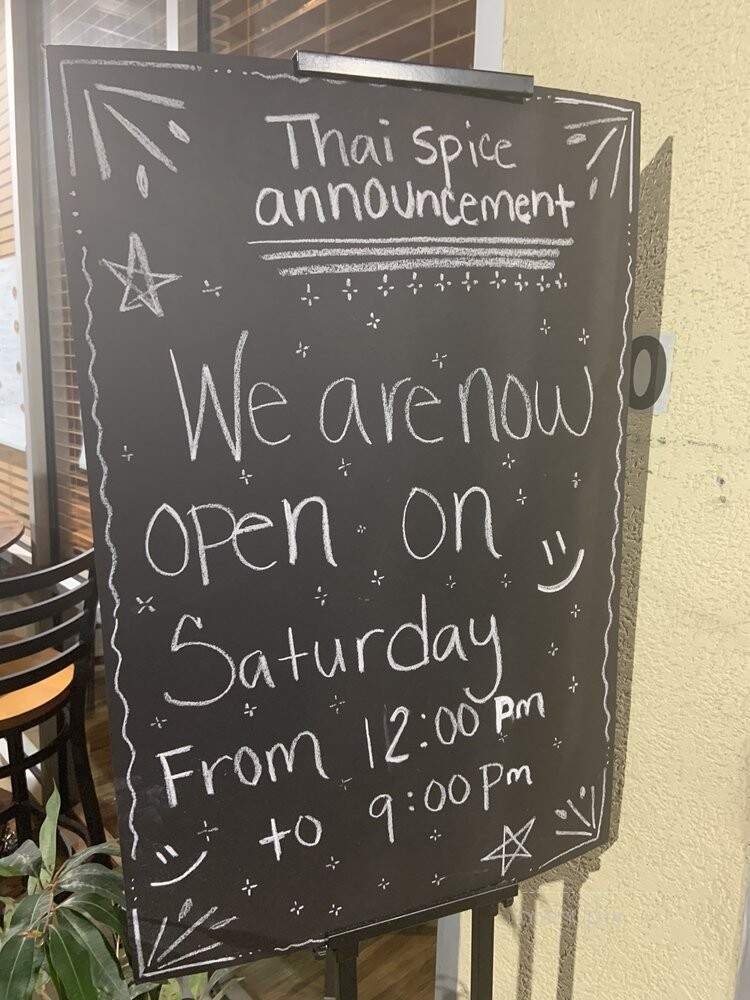 Thai spice
announcement
We are now
open on
Saturday
From 12:00 pm
to 9:00 pm
0